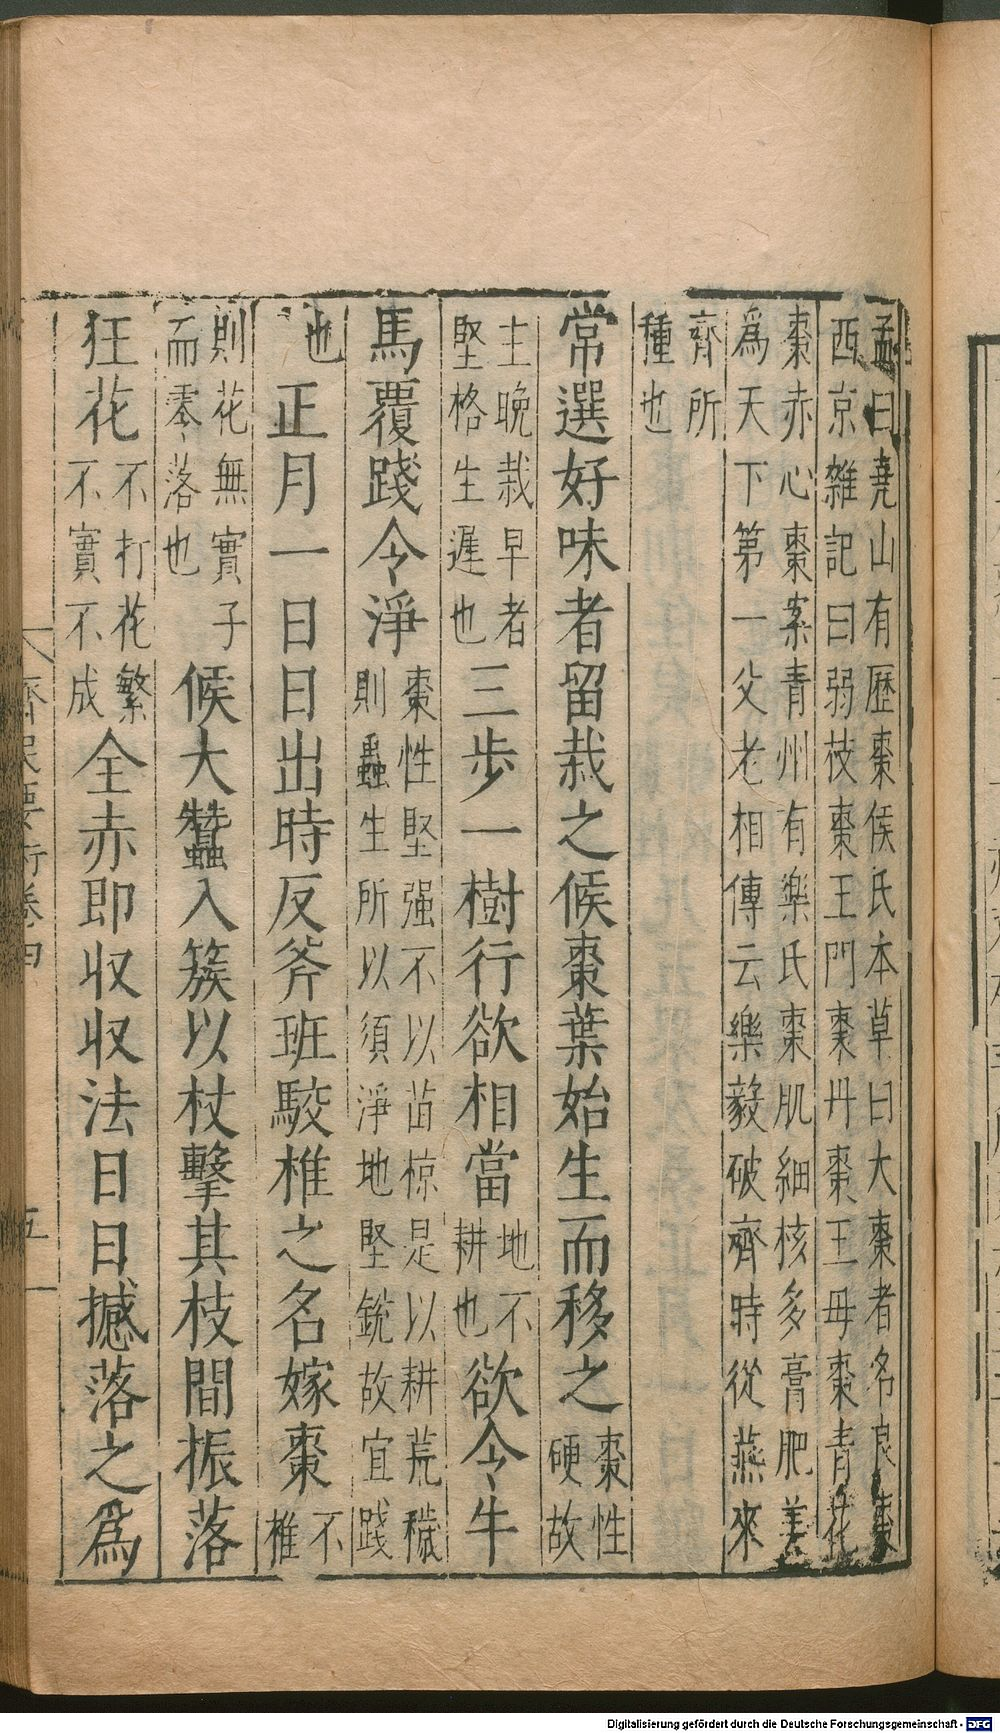 孟曰堯山有歷棗侯氏本草曰大棗者名良棗
西京雜記曰弱枝棗王門棗丹棗王毋棗青花
棗赤心棗案青州有樂氏棗肌細核多膏肥美
為天下第一父老相傳云樂毅破齊時從燕來
齊所
種也
常選好味者留栽之候棗葉始生而移之棗性硬故
主晚栽早者堅格生遲也三步一樹行欲相當地不耕也欲令牛
馬覆踐令淨棗性堅强不以苗椋是以耕荒穢則蟲生所以須淨地堅銳故宜踐
也正月一日日出時反斧班駮椎之名嫁棗不椎
則花無實子而零落也候大蠶入簇以杖擊其枝間振落
狂花不打花繁不實不成全赤即收收法日日撼落之爲
齊民要術卷四 五
Digitalisierung gefördert durch die Deutsche Forschungsgemeinschaft - DFG